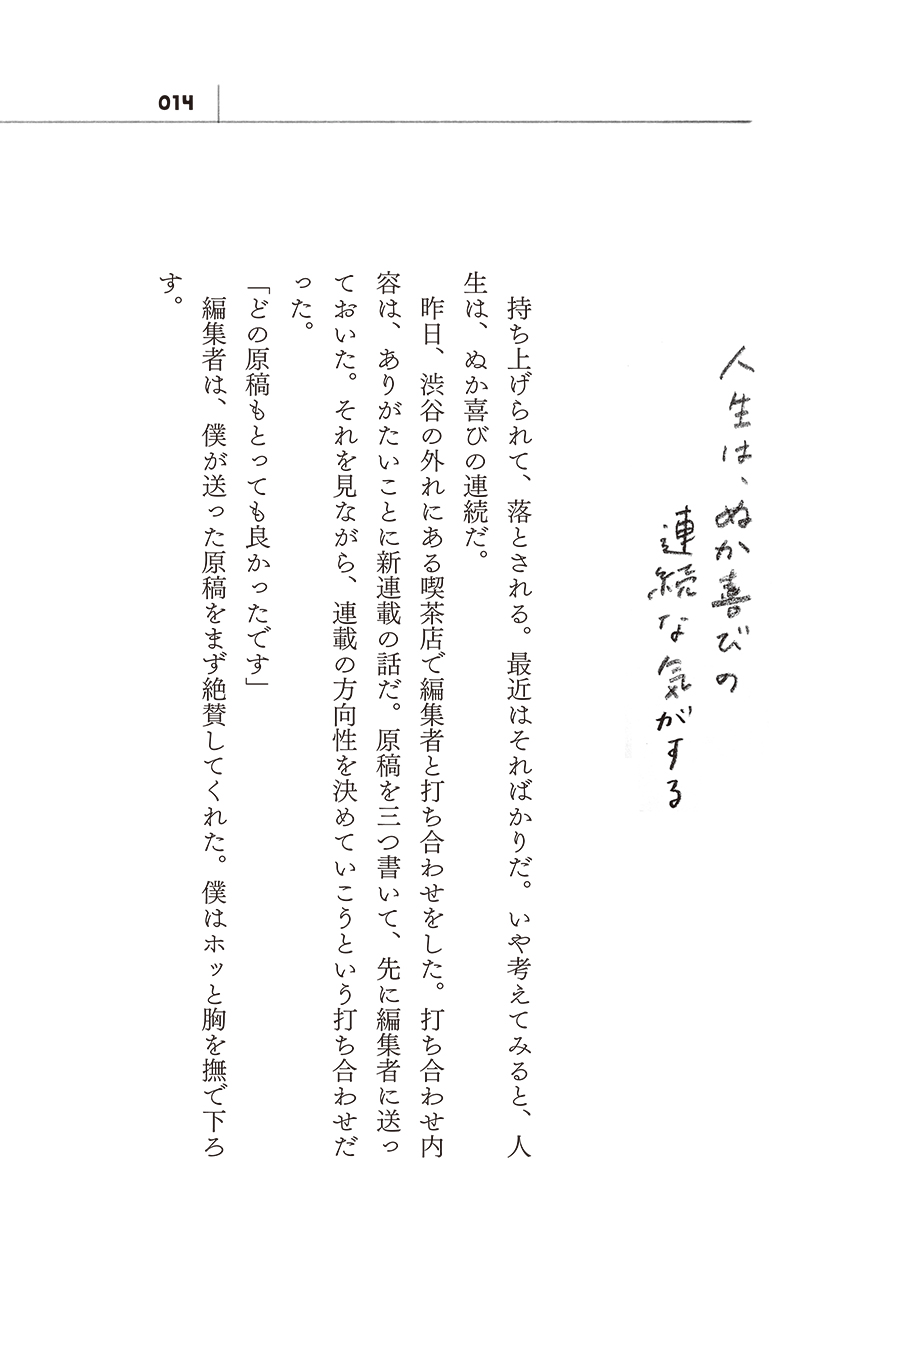 014
人生は、ぬか喜びの
連続な気がする
持ち上げられて、落とされる。最近はそればかりだ。いや考えてみると、人
生は、ぬか喜びの連続だ。
昨日、渋谷の外れにある喫茶店で編集者と打ち合わせをした。打ち合わせ内
容は、ありがたいことに新連載の話だ。原稿を三つ書いて、先に編集者に送っ
ておいた。それを見ながら、連載の方向性を決めていこうという打ち合わせだ
った。
「どの原稿もとっても良かったです」
編集者は、僕が送った原稿をまず絶賛してくれた。僕はホッと胸を撫で下ろ
す。